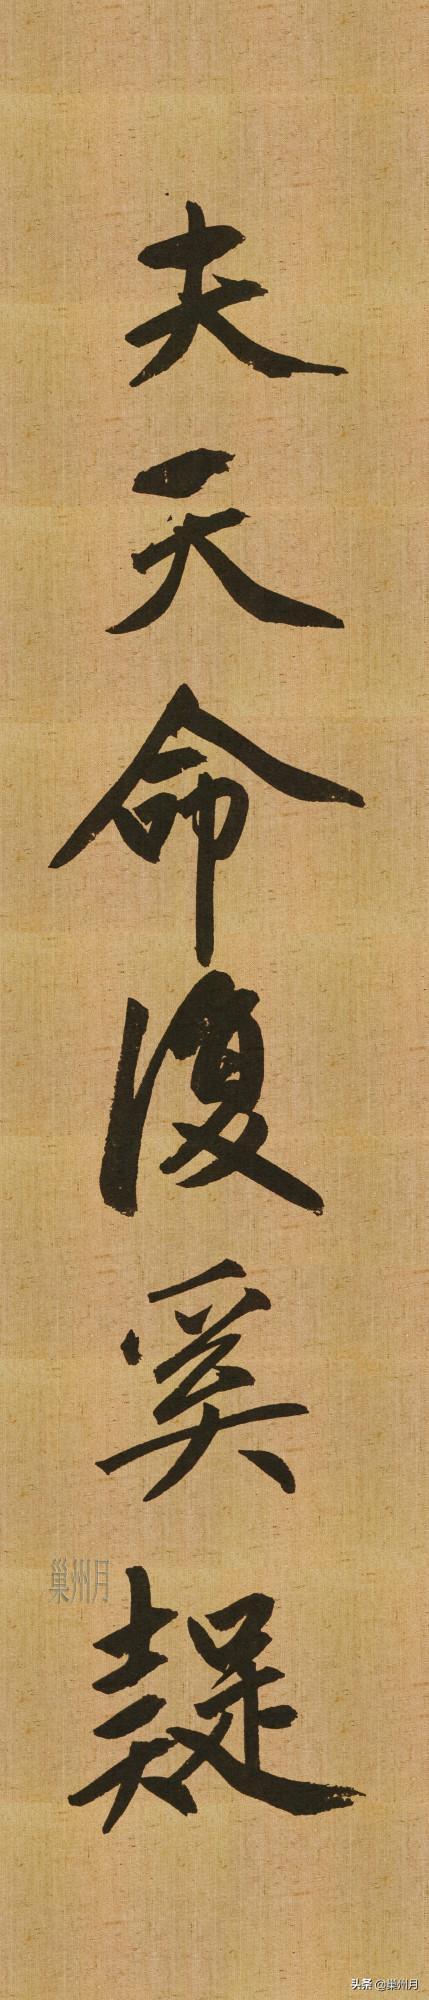 夫天命復奚疑
巢州月
头条 @巢州月